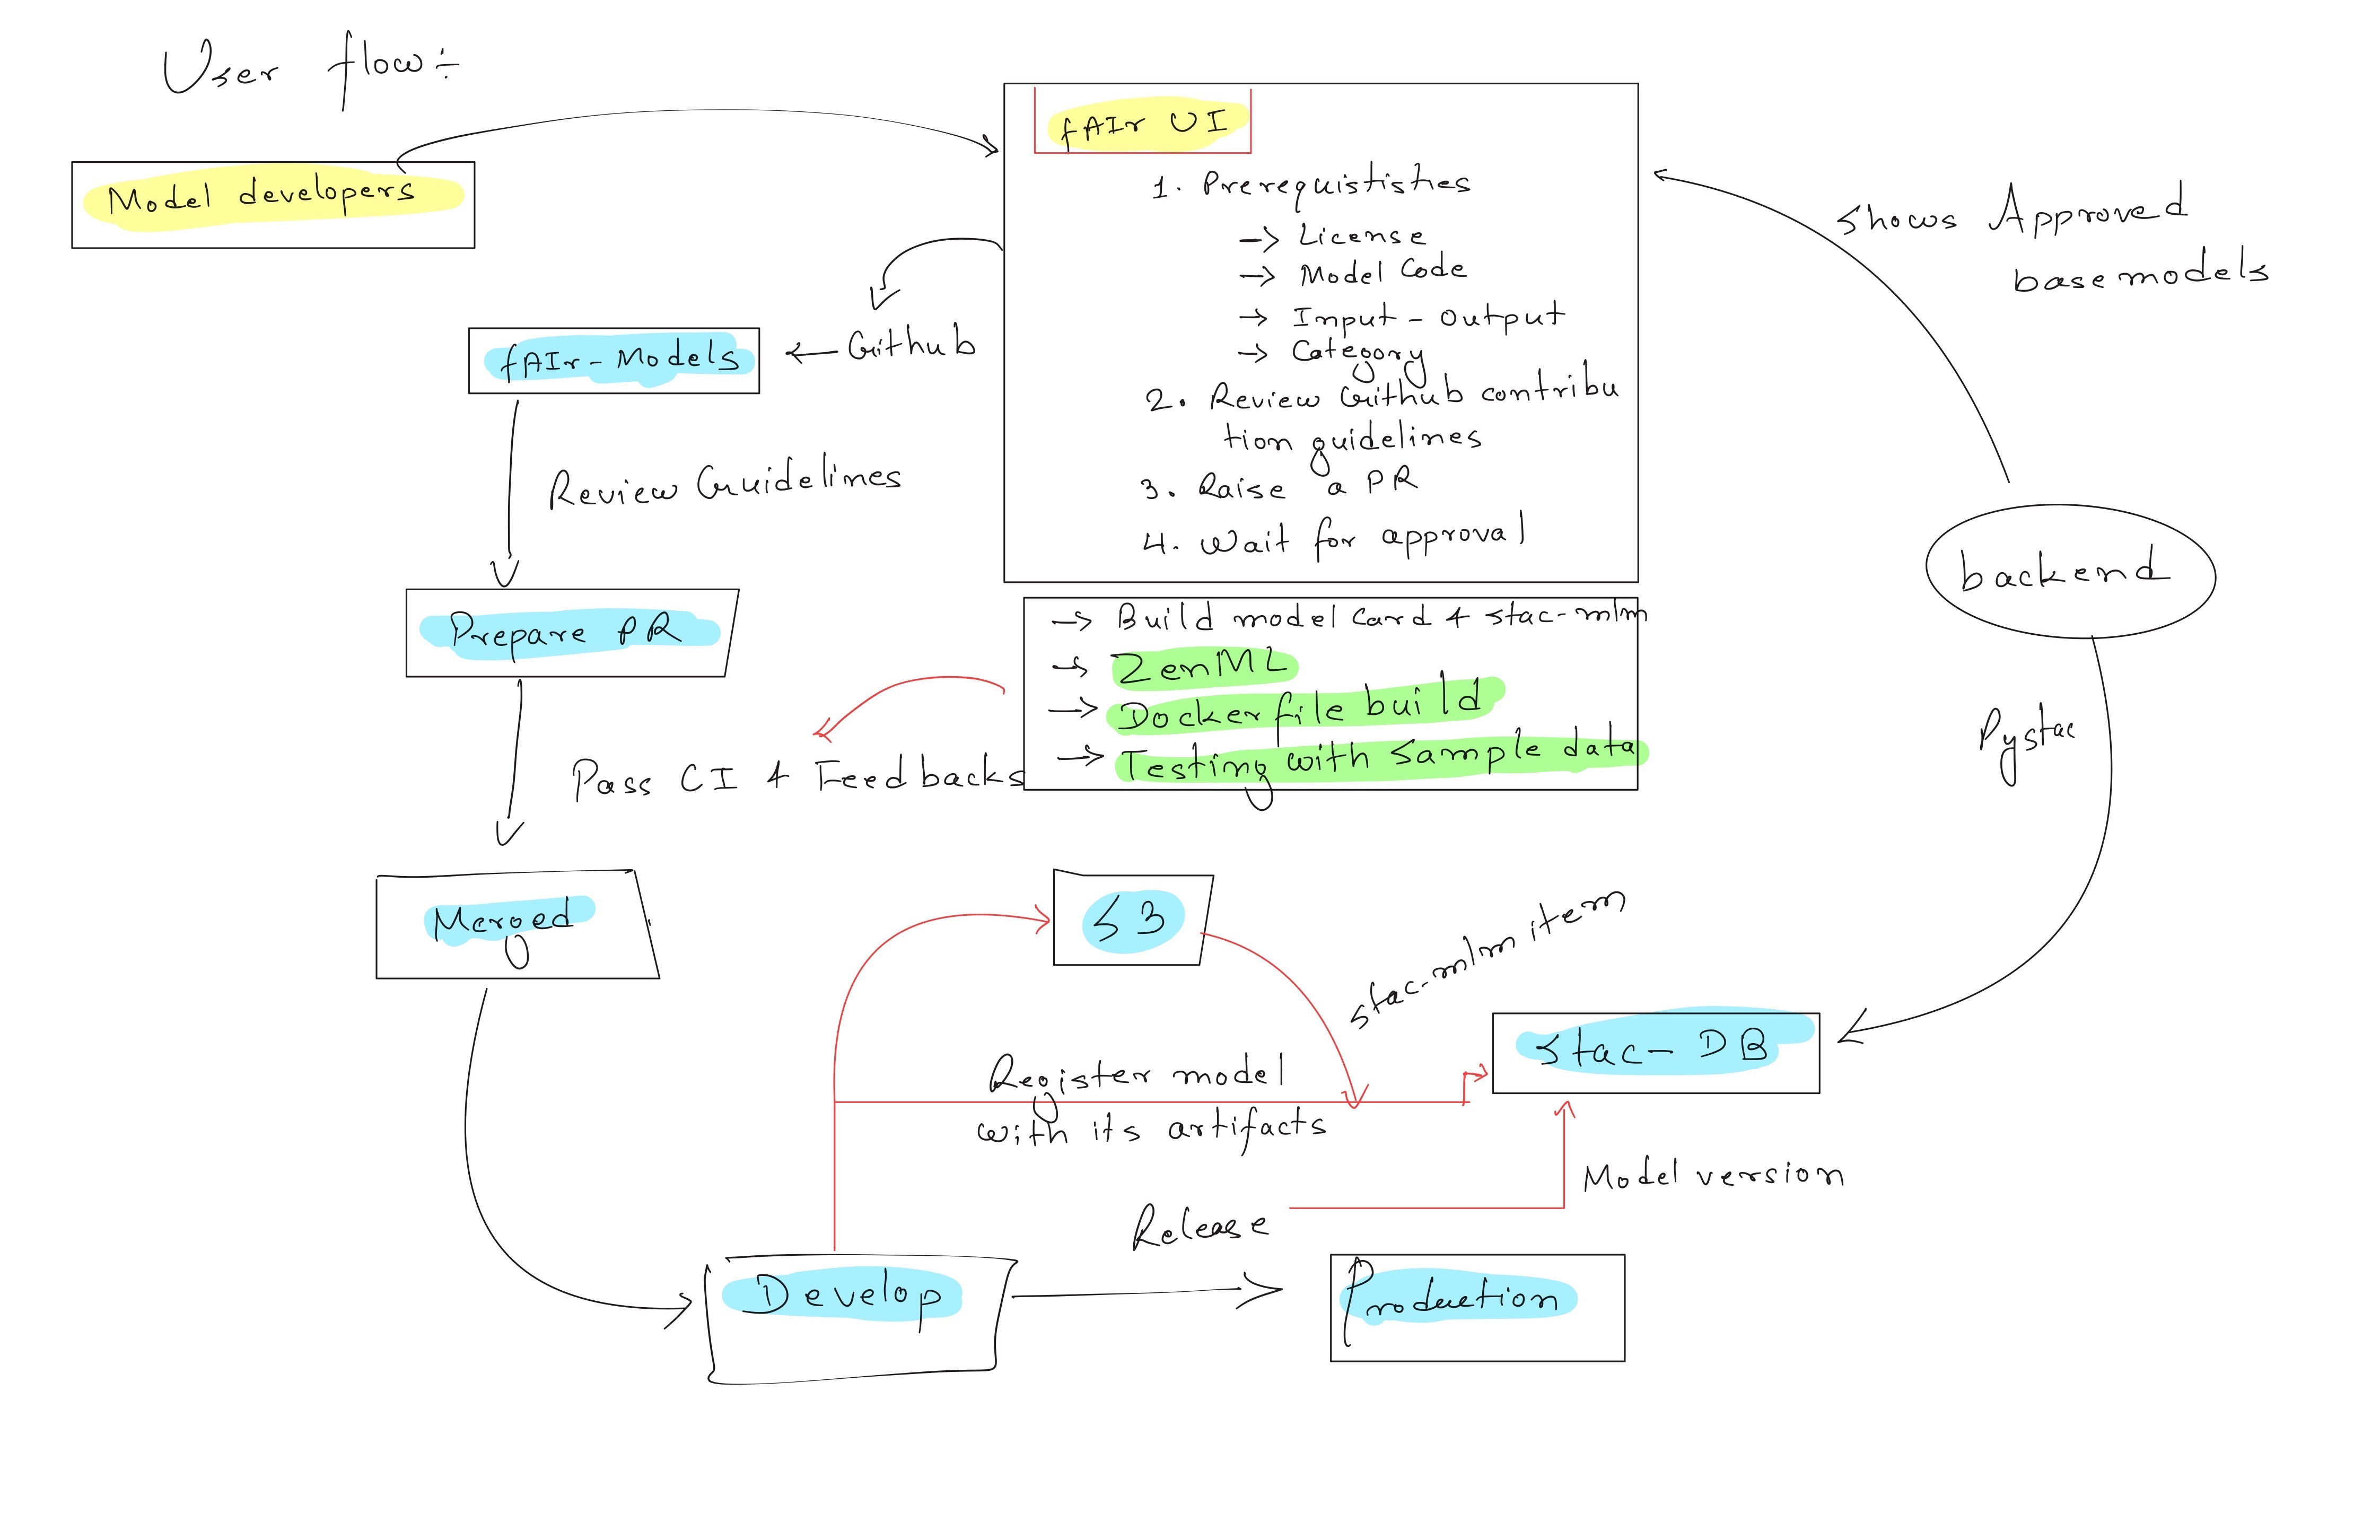 User flow:
Model developers
fAIr UI
1. Prerequististies
→ License
→ Model Code
→ Input - Output
→ Category
2. Review Github contribu
tion guidelines
3. Raise a PR
4. Wait for approval
Shows Approved
base models
← Github
fAIr-Models
Review Guidelines
backend
Prepare PR
→ Build model card & stac-mlm
→ ZenML
→ Dockerfile build
→ Testing with sample data
Pystac
Pass CI & Feedbacks
Merged
S3
stac-mlm item
Stac-DB
Register model
with its artifacts
Model version
Release
Develop
Production